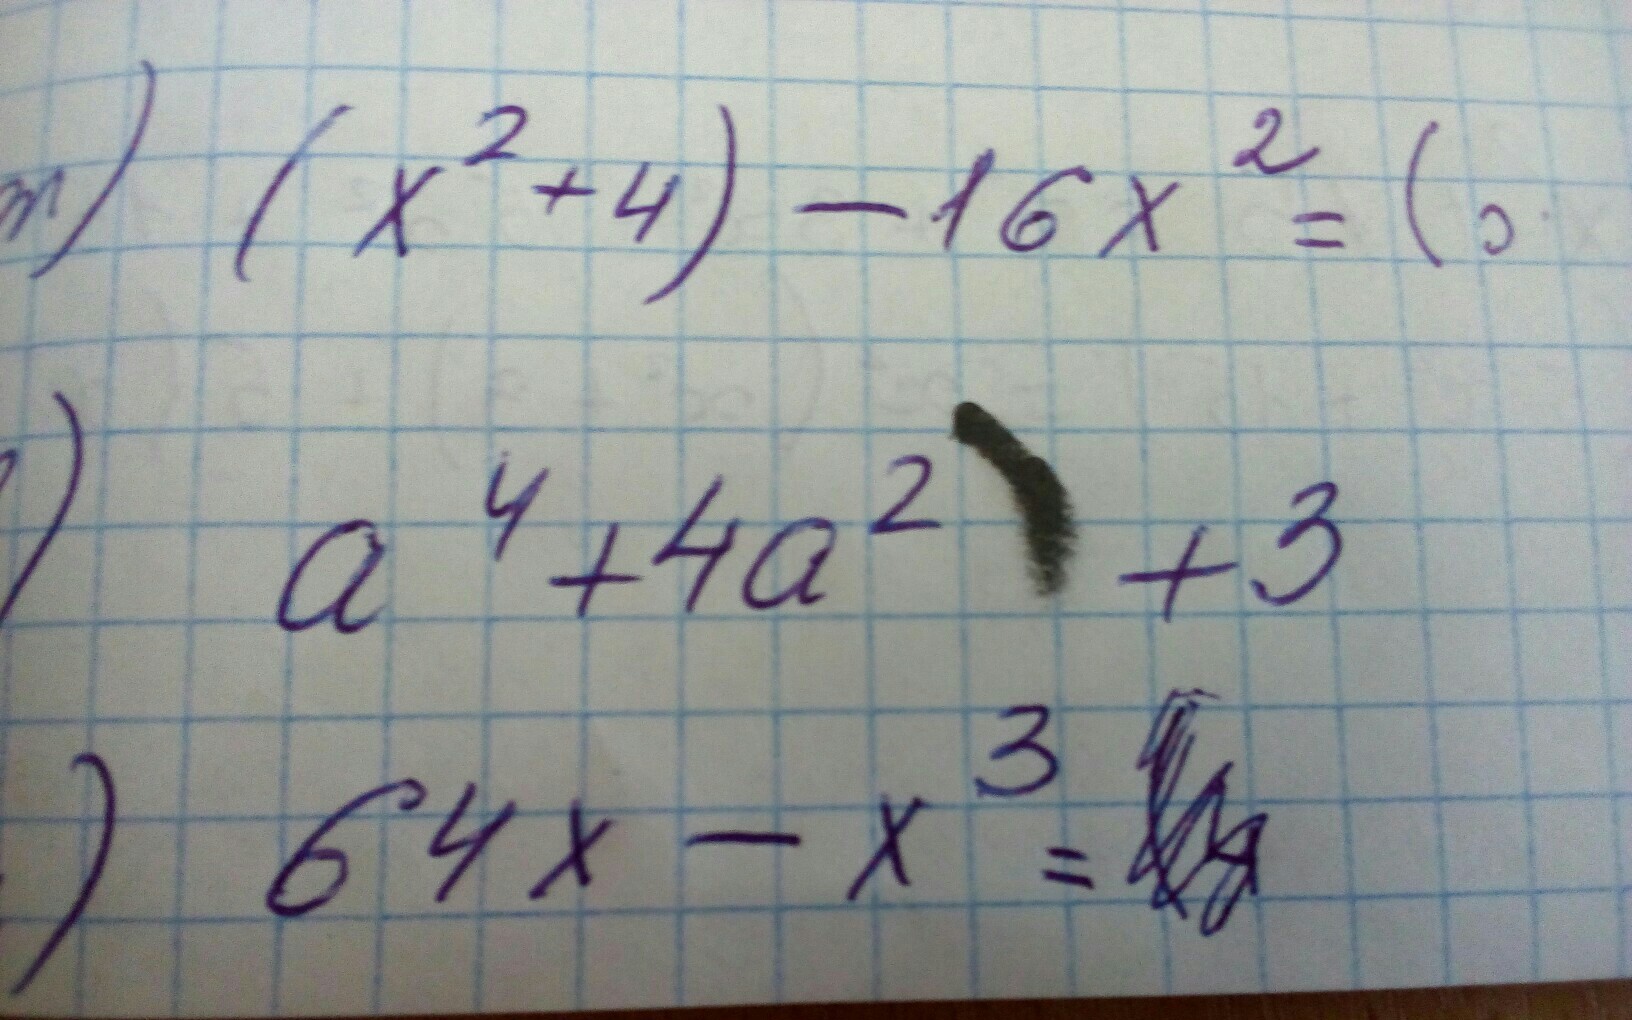 m) (x²+4) - 16x² = (
) a⁴+4a² +3
) 64x - x³ =